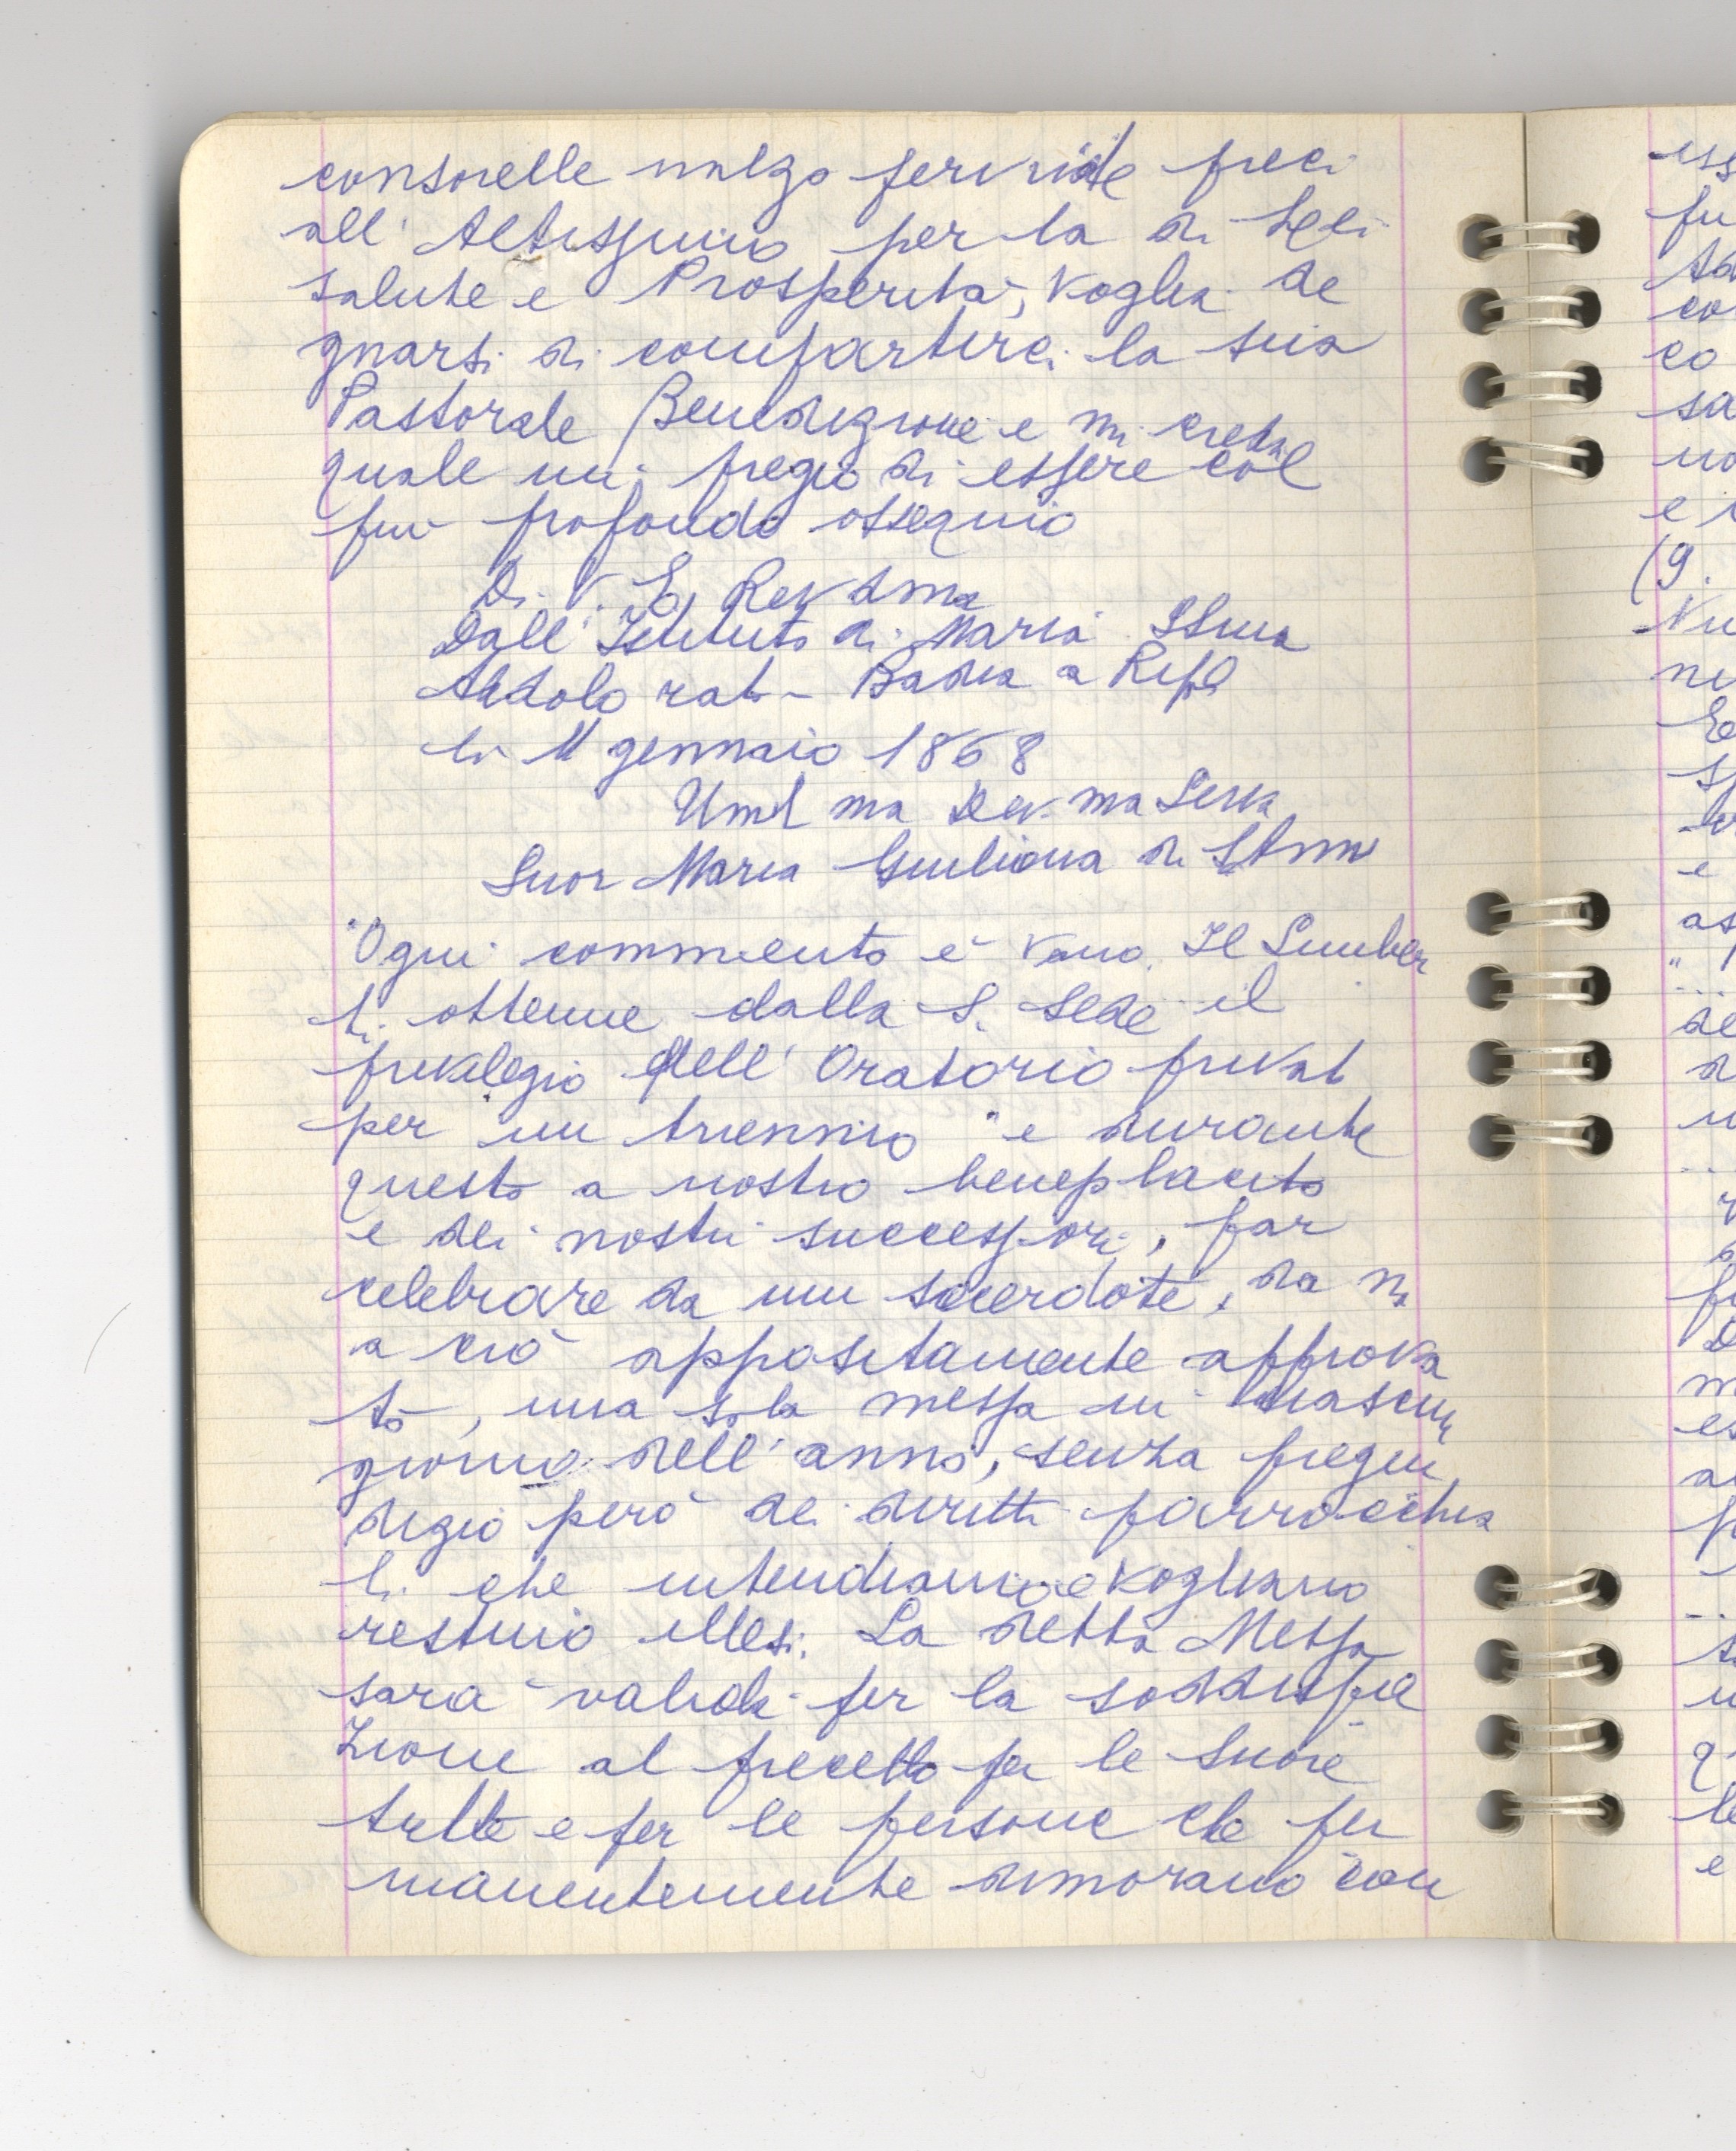 consorelle inalzo fervide preci
all'Altissimo per la di Lei
salute e Prosperità, Voglia de
gnarsi di compartirci la sua
Pastorale Benedizione e mi creda
quale mi pregio di essere col
più profondo ossequio
Di V. E. Rev.dma
Dall'Istituto di Maria SSma
Addolorata - Badia a Ripoli
li 11 gennaio 1868
Uml ma Dev. ma Serva
Suor Maria Giuliana di
"Ogni commento è vano. Il Limber
ti ottenne dalla S. Sede il
privilegio dell'Oratorio privato
per un triennio "e durante
questo a nostro beneplacito
e dei nostri successori, far
celebrare da un sacerdote, da Noi
a ciò appositamente approva
to, una sola messa in ciascun
giorno dell'anno, senza pregiu
dizio però dei diritti parrocchia
li che intendiamo e vogliamo
restino illesi. La detta Messa
sarà valida per la soddisfa
zione al precetto per le Suore
tutte e per le persone che per
manentemente dimorano con